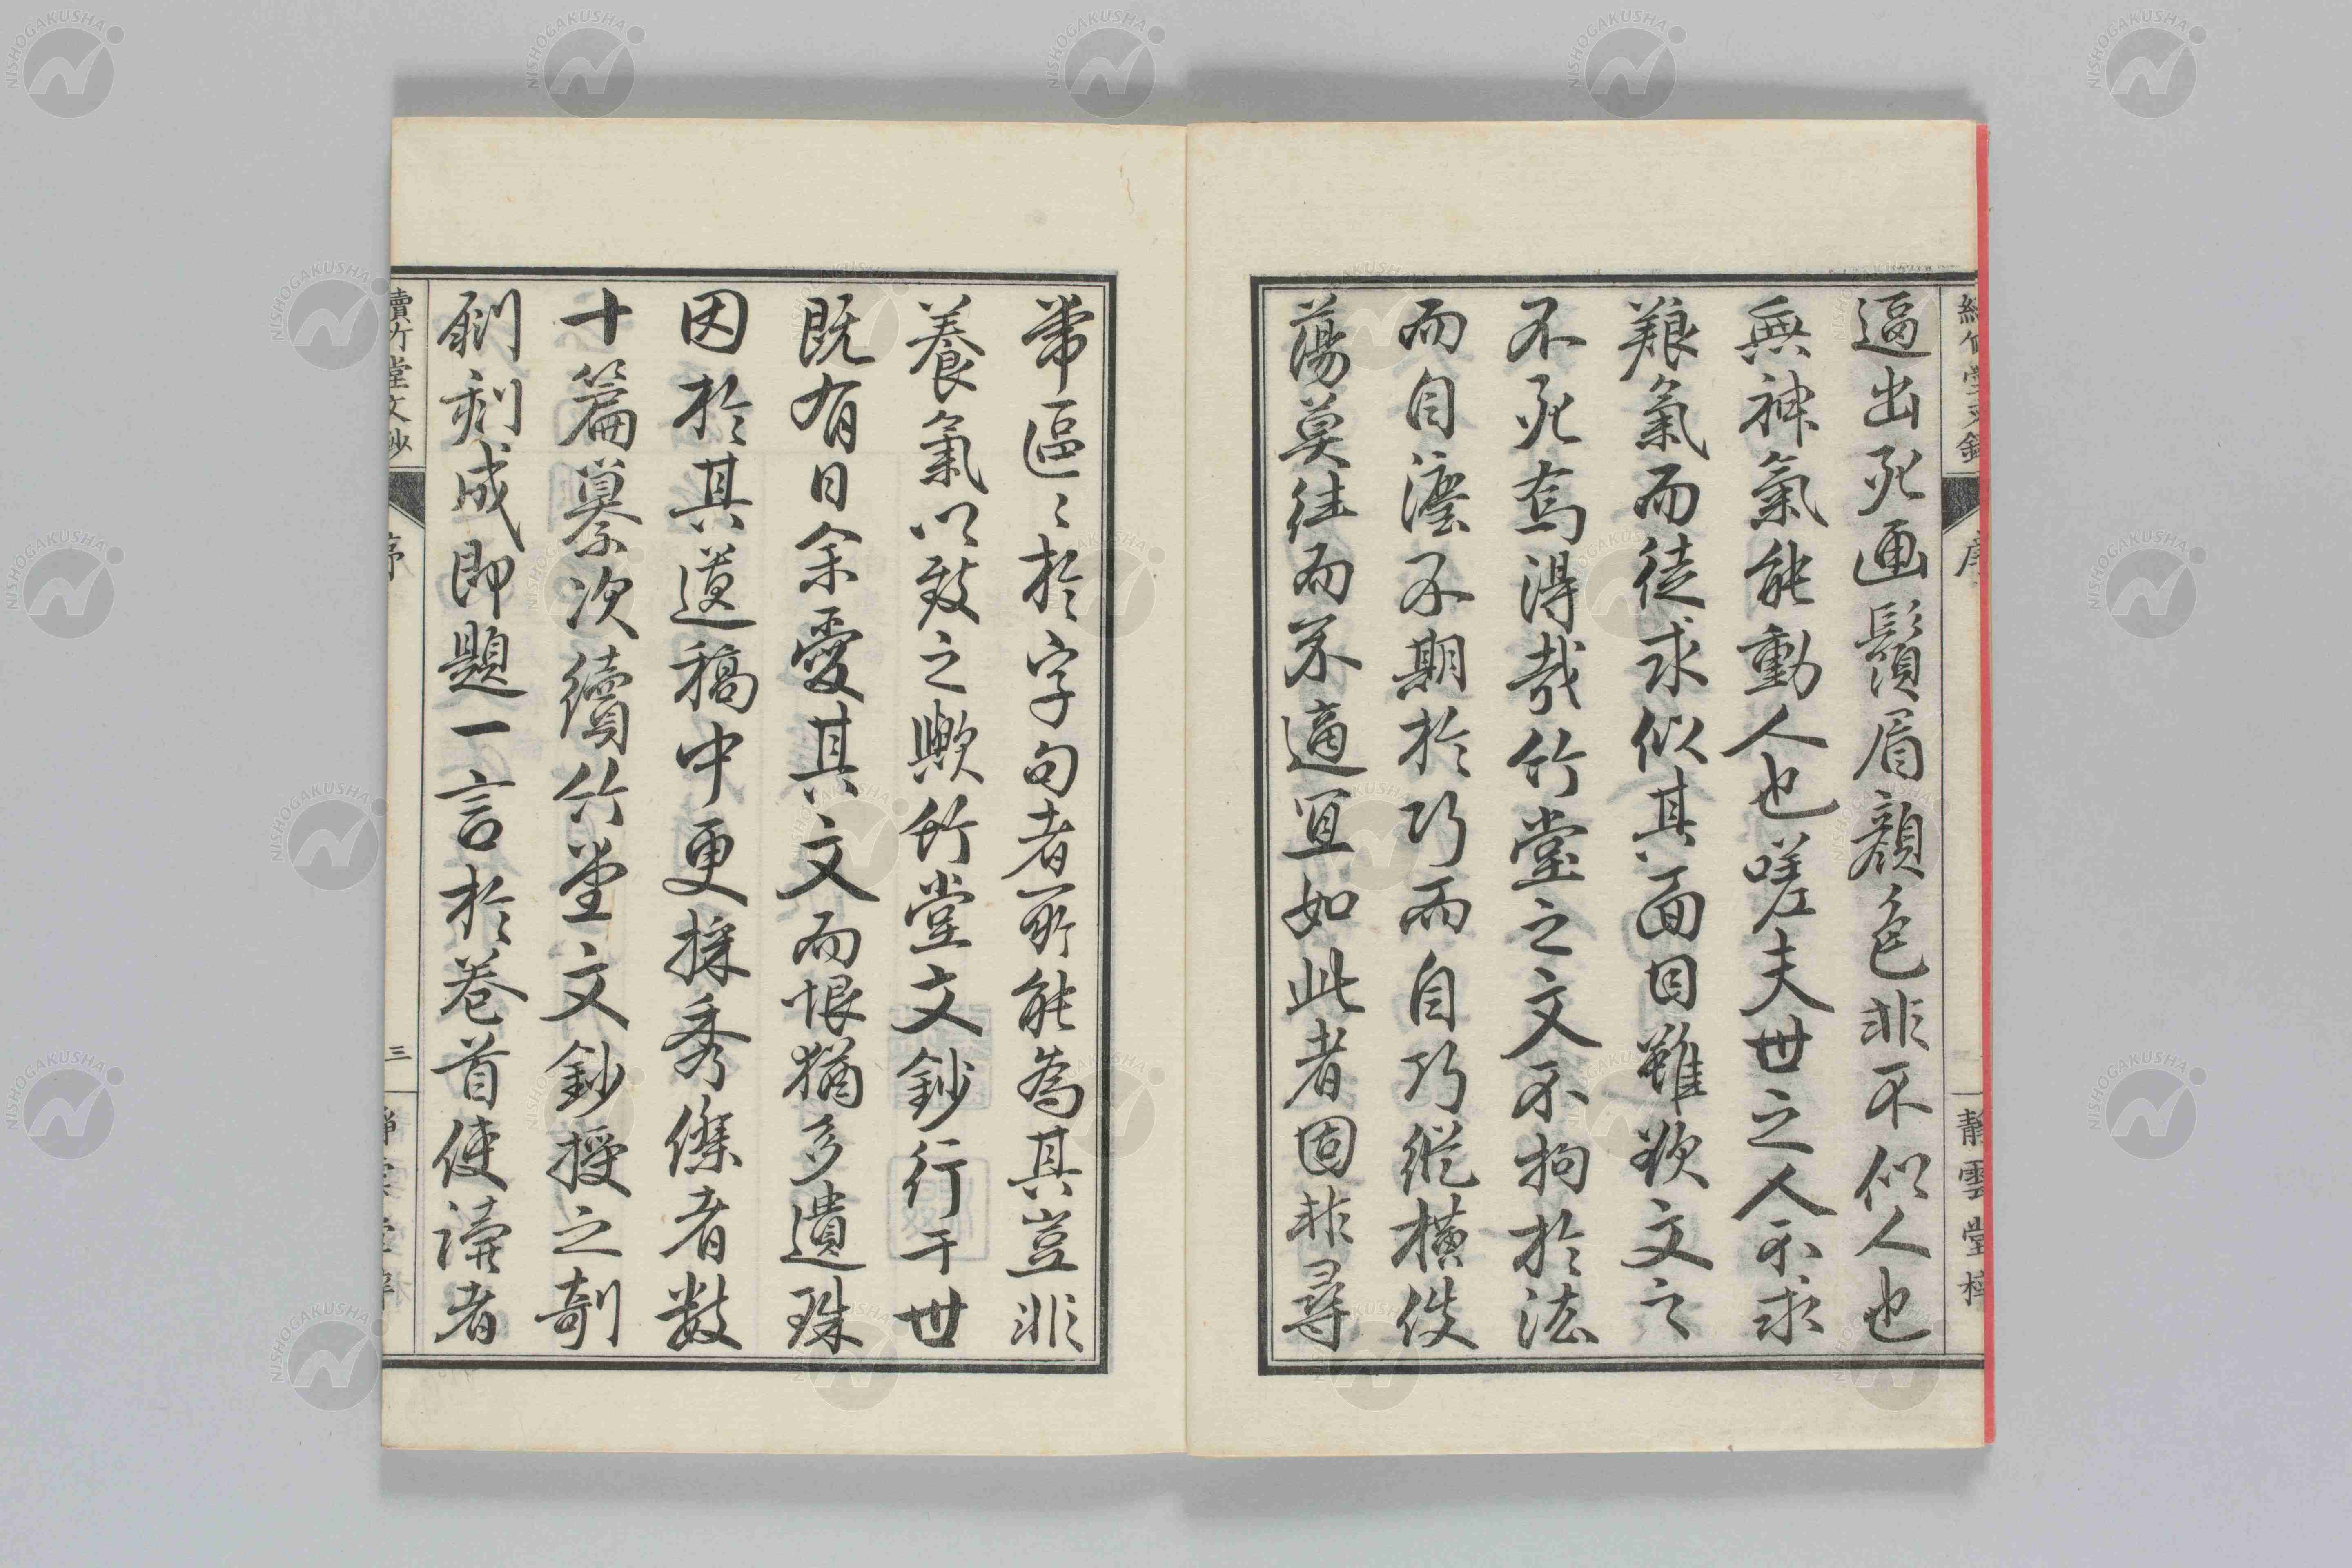 逼出死画鬚眉顏色非不似人也
無神氣能動人也嗟夫世之人不求
養氣而徒求似其面目雖欲文之
不死焉得哉竹堂之文不拘於法
而自法不期於巧而自巧縱横佚
蕩莫往而不適宜如此者固非尋
常區〻於字句者所能為其豈非
養氣以致之歟竹堂文鈔行于世
既有日余愛其文而恨猶多遺珠
因於其遺稿中更採秀傑者數
十篇纂次續竹堂文鈔授之剞
劂刻成即題一言於卷首使讀者
續竹堂文鈔
序
三
靜雲堂梓
NISHOGAKUSHA